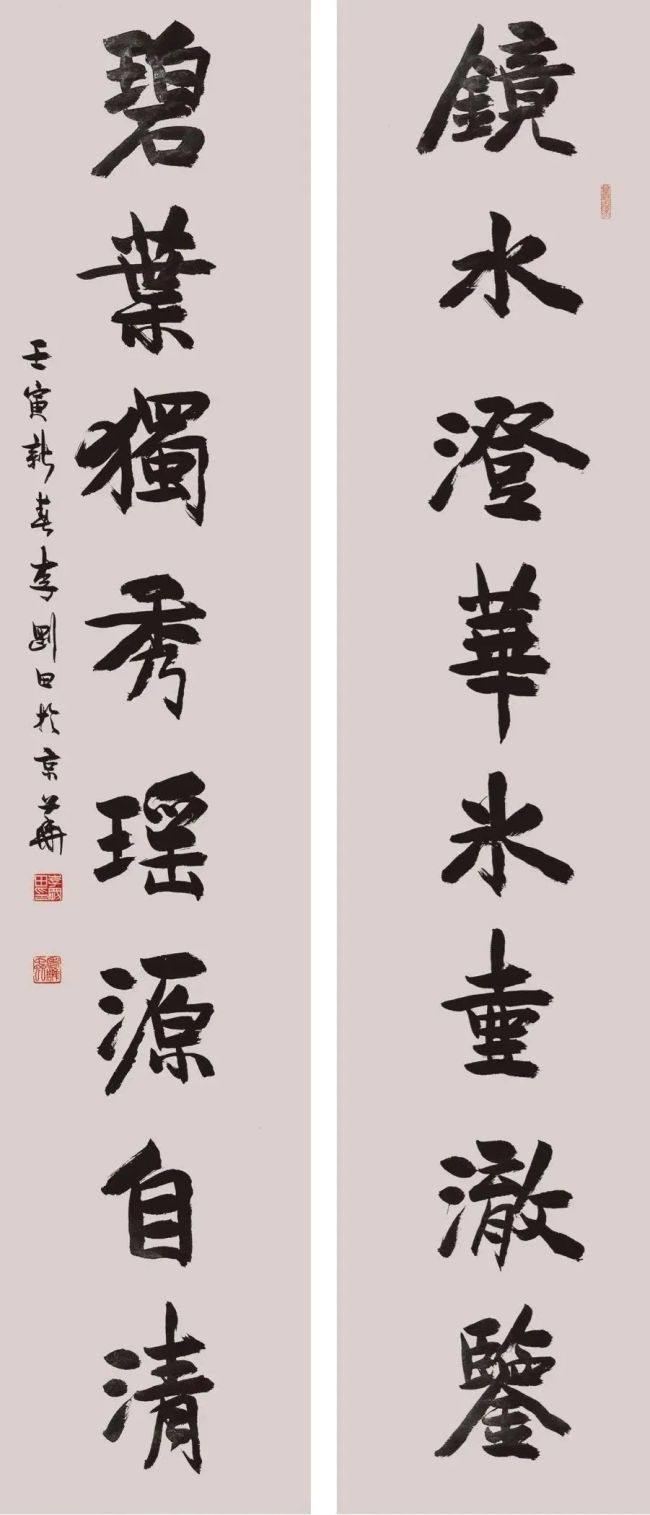 鏡水澄華氷壷澈鑒
碧葉獨秀瑶源自清
壬寅新春李剛田於京華